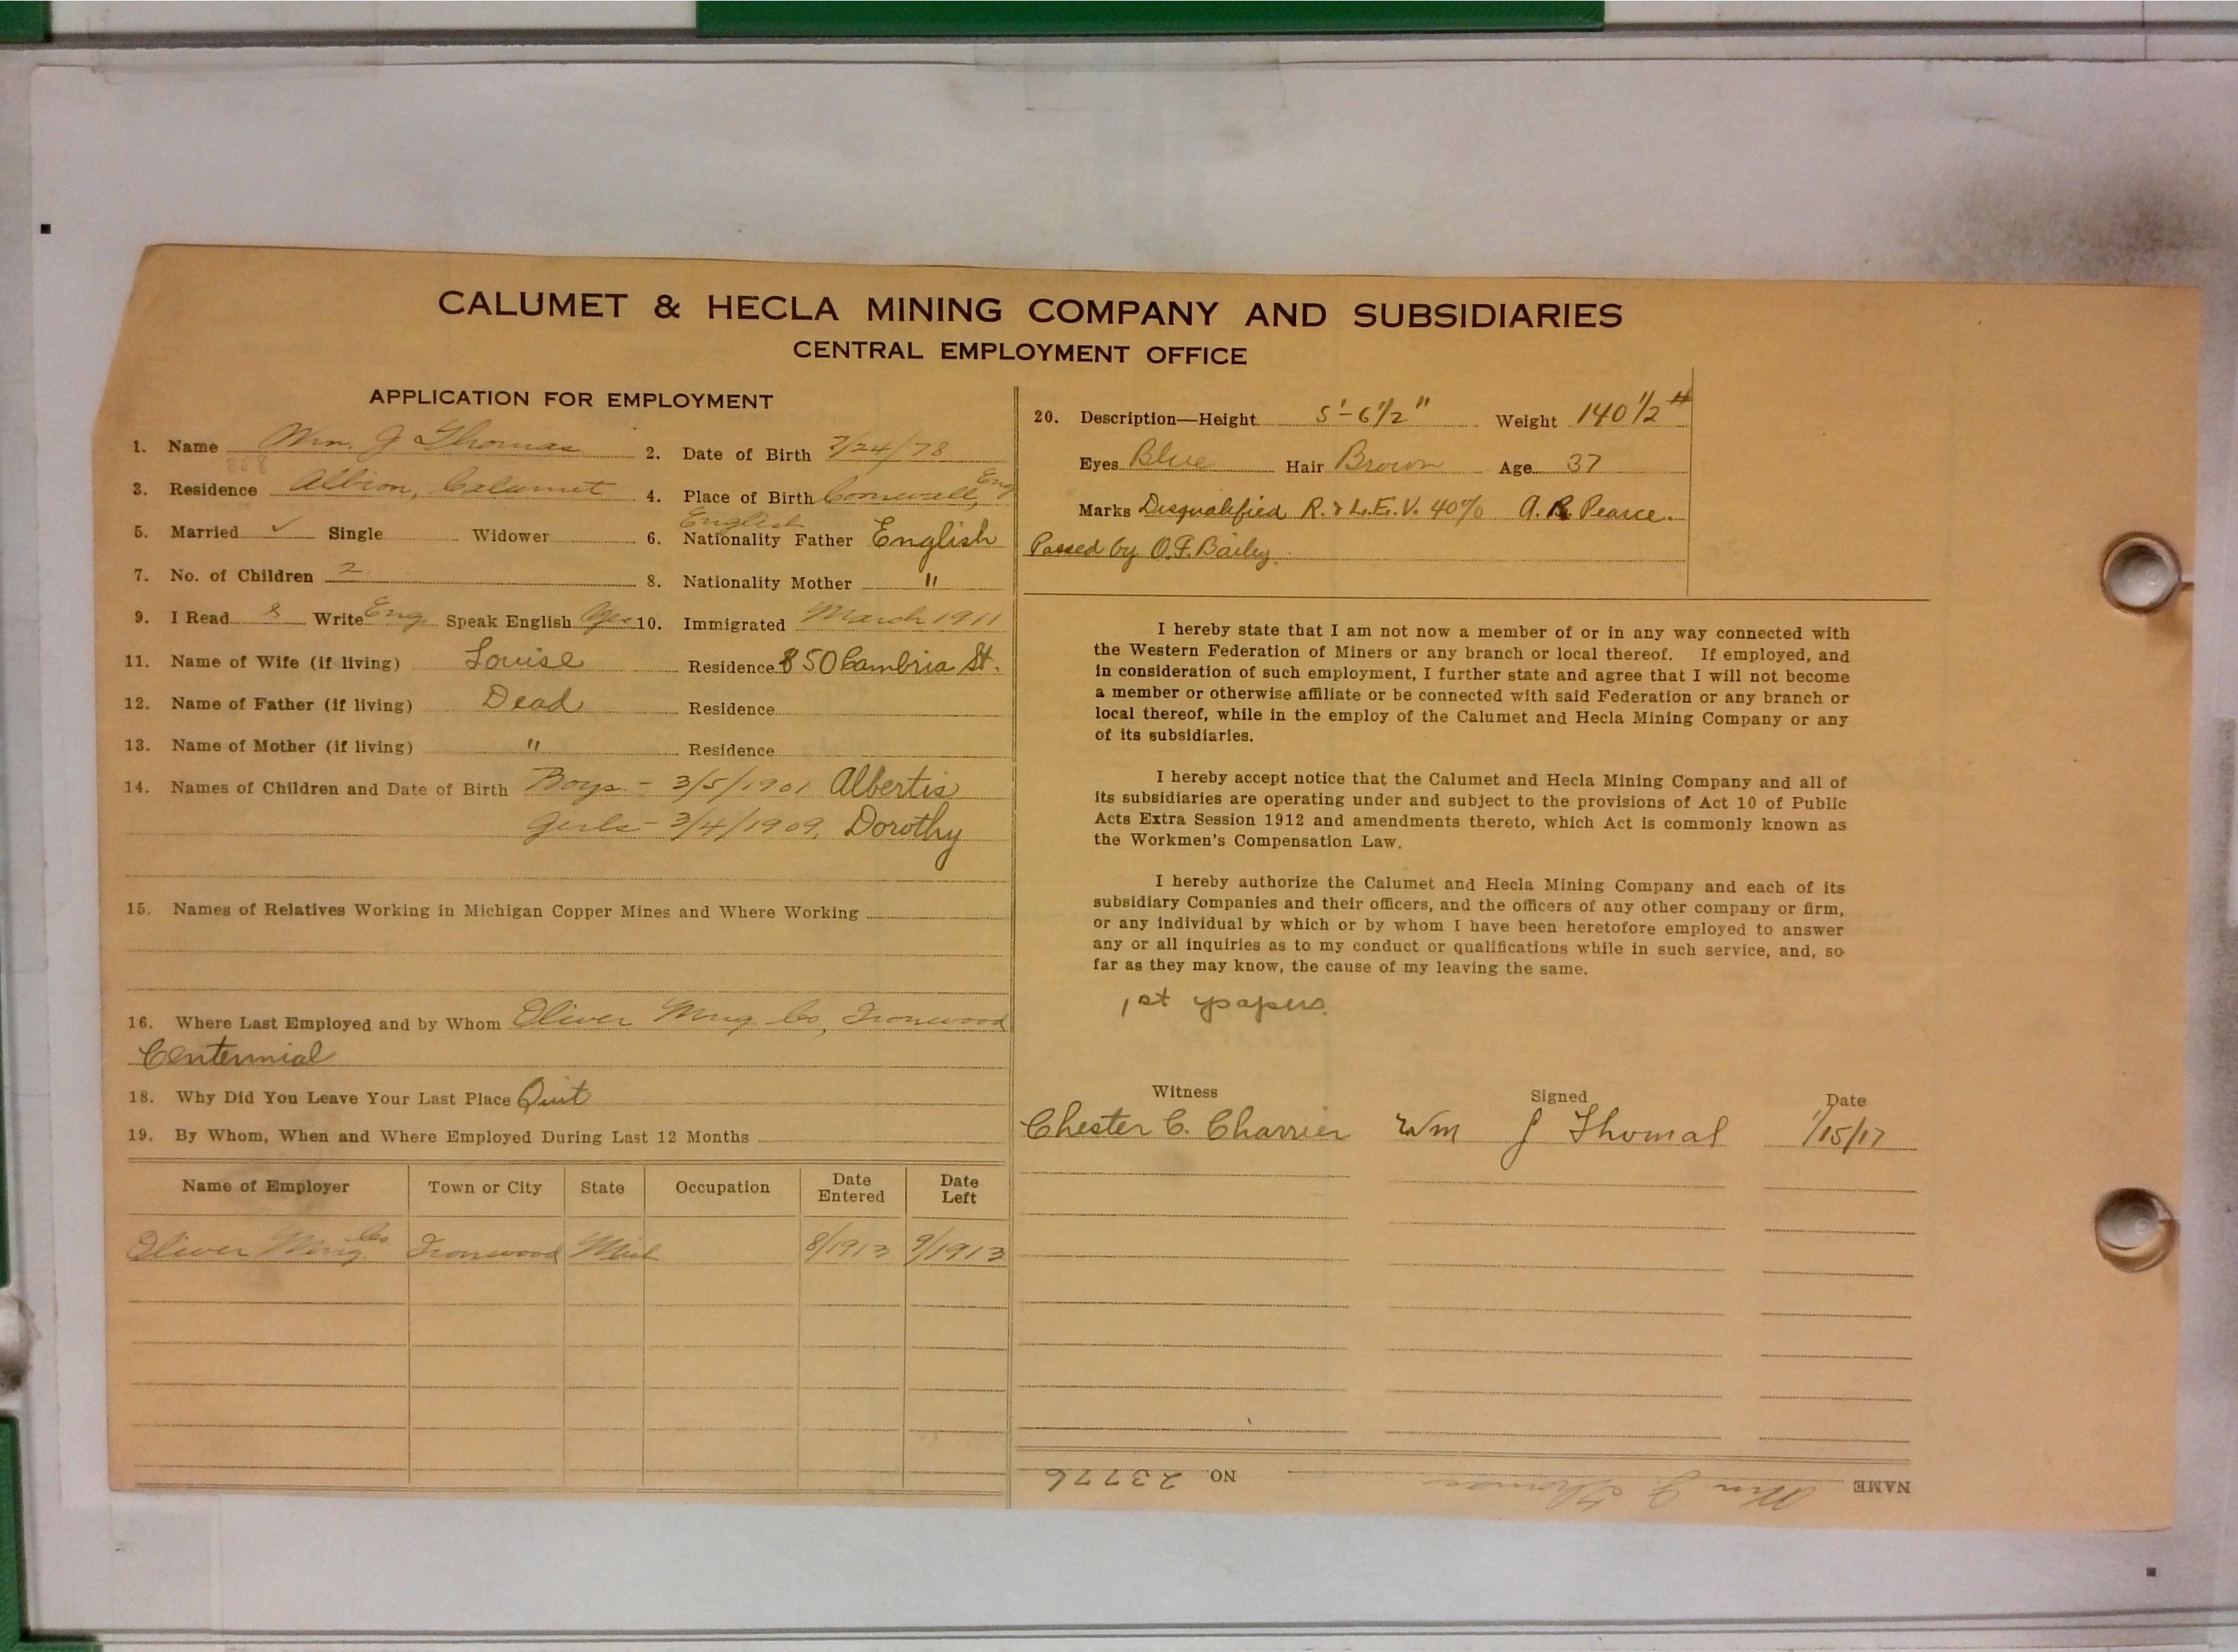 CALUMET & HECLA MINING COMPANY AND SUBSIDIARIES
CENTRAL EMPLOYMENT OFFICE
APPLICATION FOR EMPLOYMENT
1. Name Wm. J Thomas 2. Date of Birth 7/24/78
858
3. Residence Albion, Calumet 4. Place of Birth Cornwall, Eng
English
5. Married ✓ Single Widower 6. Nationality Father English
7. No. of Children 2 8. Nationality Mother "
9. I Read & Write Eng. Speak English Yes 10. Immigrated March 1911
11. Name of Wife (if living) Louise Residence 850 Cambria St.
12. Name of Father (if living) Dead Residence
13. Name of Mother (if living) " Residence
14. Names of Children and Date of Birth Boys - 3/5/1901 Albertis
Girls - 3/4/1909, Dorothy
15. Names of Relatives Working in Michigan Copper Mines and Where Working
16. Where Last Employed and by Whom Oliver Mng Co, Ironwood
Centennial
18. Why Did You Leave Your Last Place Quit
19. By Whom, When and Where Employed During Last 12 Months
Name of Employer Town or City State Occupation Date Entered Date Left
Oliver Mng. Co Ironwood Mich 8/1913 9/1913
20. Description—Height 5'-6 1/2" Weight 140 1/2 #
Eyes Blue Hair Brown Age 37
Marks Disqualified R. & L.E.V. 40% A.R. Pearce.
Passed by O.F. Bailey.
I hereby state that I am not now a member of or in any way connected with
the Western Federation of Miners or any branch or local thereof. If employed, and
in consideration of such employment, I further state and agree that I will not become
a member or otherwise affiliate or be connected with said Federation or any branch or
local thereof, while in the employ of the Calumet and Hecla Mining Company or any
of its subsidiaries.
I hereby accept notice that the Calumet and Hecla Mining Company and all of
its subsidiaries are operating under and subject to the provisions of Act 10 of Public
Acts Extra Session 1912 and amendments thereto, which Act is commonly known as
the Workmen's Compensation Law.
I hereby authorize the Calumet and Hecla Mining Company and each of its
subsidiary Companies and their officers, and the officers of any other company or firm,
or any individual by which or by whom I have been heretofore employed to answer
any or all inquiries as to my conduct or qualifications while in such service, and, so
far as they may know, the cause of my leaving the same.
1st papers.
Witness Signed Date
Chester C. Charrier Wm J Thomas 1/15/17
NAME Wm J. Thomas NO. 23776